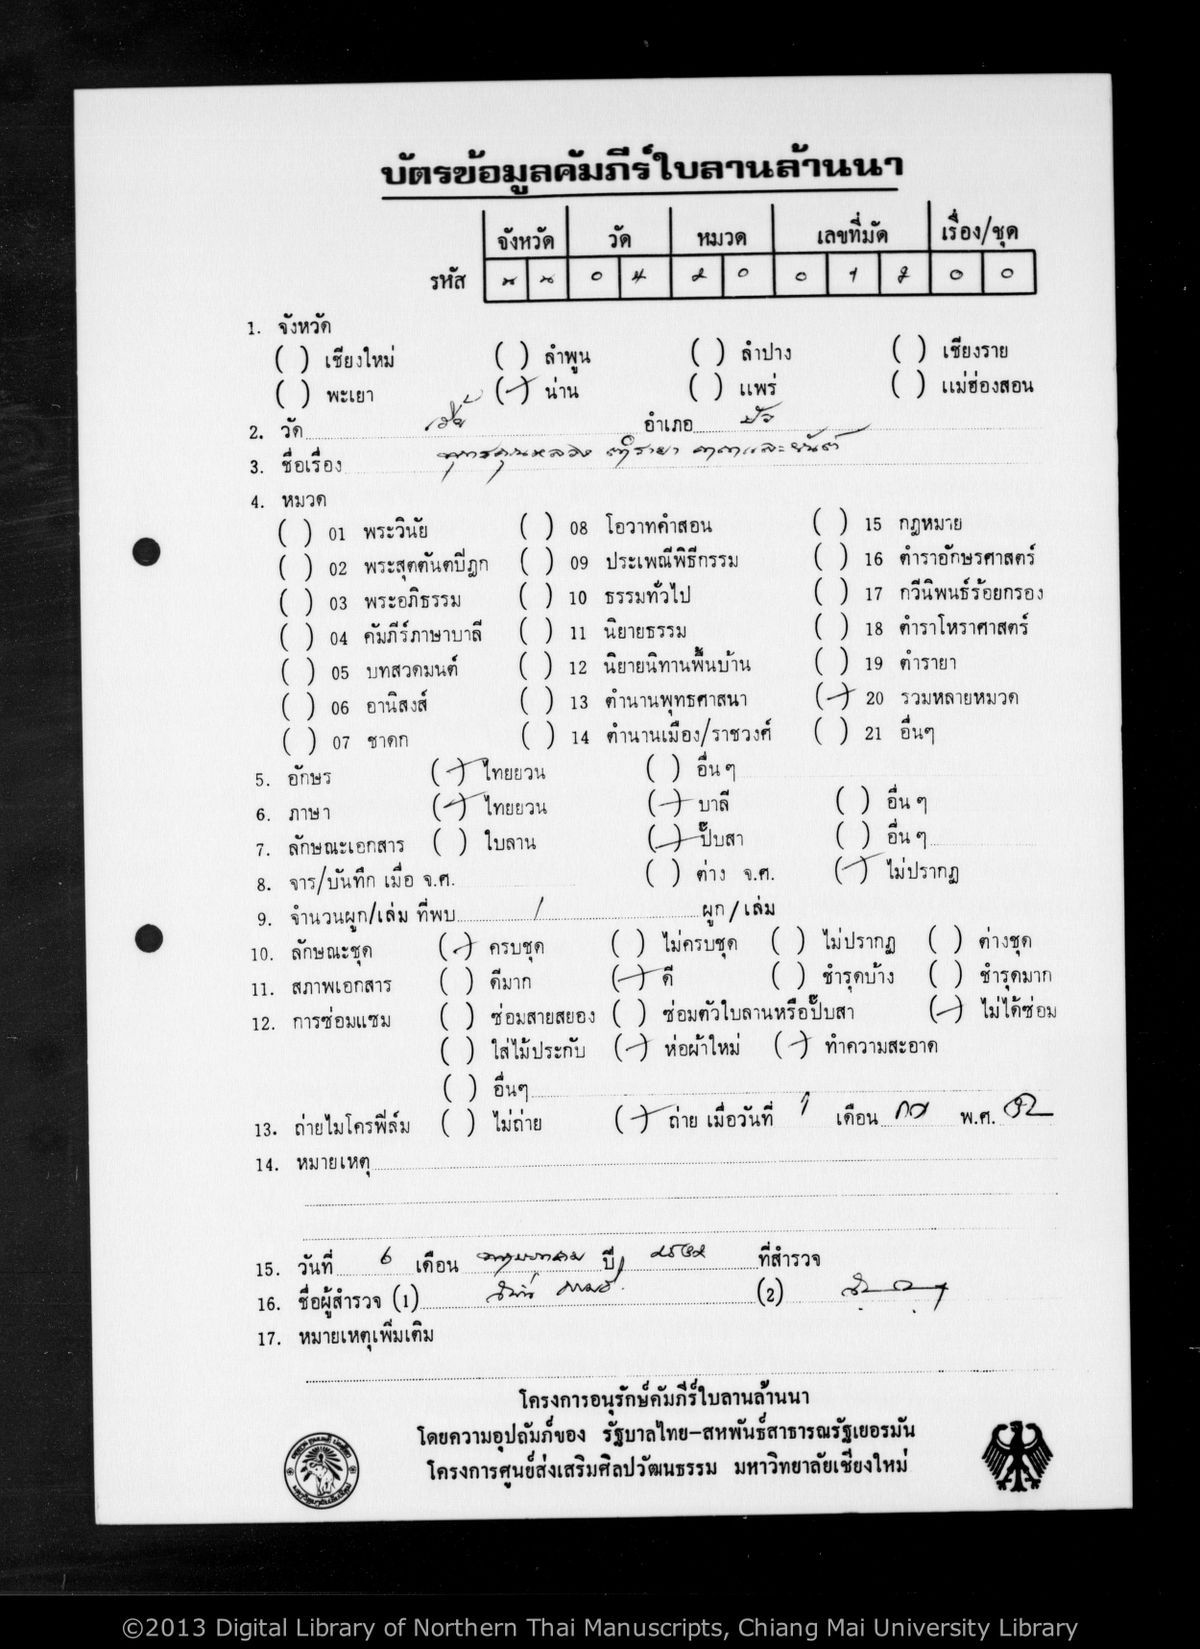 บัตรข้อมูลคัมภีร์ใบลานล้านนา
จังหวัด วัด หมวด เลขที่มัด เรื่อง/ชุด
รหัส น น 0 4 2 0 0 1 0 0
1. จังหวัด
( ) เชียงใหม่ ( ) ลำพูน ( ) ลำปาง ( ) เชียงราย
( ) พะเยา (/) น่าน ( ) แพร่ ( ) แม่ฮ่องสอน
2. วัด อำเภอ ปัว
3. ชื่อเรื่อง ตำรายา คาถาและยันต์
4. หมวด
( ) 01 พระวินัย ( ) 08 โอวาทคำสอน ( ) 15 กฎหมาย
( ) 02 พระสุตตันตปีฎก ( ) 09 ประเพณีพิธีกรรม ( ) 16 ตำราอักษรศาสตร์
( ) 03 พระอภิธรรม ( ) 10 ธรรมทั่วไป ( ) 17 กวีนิพนธ์ร้อยกรอง
( ) 04 คัมภีร์ภาษาบาลี ( ) 11 นิยายธรรม ( ) 18 ตำราโหราศาสตร์
( ) 05 บทสวดมนต์ ( ) 12 นิยายนิทานพื้นบ้าน ( ) 19 ตำรายา
( ) 06 อานิสงส์ ( ) 13 ตำนานพุทธศาสนา (/) 20 รวมหลายหมวด
( ) 07 ชาดก ( ) 14 ตำนานเมือง/ราชวงศ์ ( ) 21 อื่นๆ
5. อักษร (/) ไทยยวน ( ) อื่นๆ
6. ภาษา (/) ไทยยวน (/) บาลี ( ) อื่นๆ
7. ลักษณะเอกสาร ( ) ใบลาน (/) ปั๊บสา ( ) อื่นๆ
8. จาร/บันทึก เมื่อ จ.ศ. ( ) ต่าง จ.ศ. (/) ไม่ปรากฏ
9. จำนวนผูก/เล่ม ที่พบ / ผูก/เล่ม
10. ลักษณะชุด (/) ครบชุด ( ) ไม่ครบชุด ( ) ไม่ปรากฏ ( ) ต่างชุด
11. สภาพเอกสาร ( ) ดีมาก (/) ดี ( ) ชำรุดบ้าง ( ) ชำรุดมาก
12. การซ่อมแซม ( ) ซ่อมสายสยอง ( ) ซ่อมตัวใบลานหรือปั๊บสา (/) ไม่ได้ซ่อม
( ) ใส่ไม้ประกับ (/) ห่อผ้าใหม่ (/) ทำความสะอาด
( ) อื่นๆ
13. ถ่ายไมโครฟิล์ม ( ) ไม่ถ่าย (/) ถ่าย เมื่อวันที่ เดือน พ.ศ.
14. หมายเหตุ
15. วันที่ 6 เดือน พฤษภาคม ปี ที่สำรวจ
16. ชื่อผู้สำรวจ (1) (2)
17. หมายเหตุเพิ่มเติม
โครงการอนุรักษ์คัมภีร์ใบลานล้านนา
โดยความอุปถัมภ์ของ รัฐบาลไทย-สหพันธ์สาธารณรัฐเยอรมัน
โครงการศูนย์ส่งเสริมศิลปวัฒนธรรม มหาวิทยาลัยเชียงใหม่
©2013 Digital Library of Northern Thai Manuscripts, Chiang Mai University Library